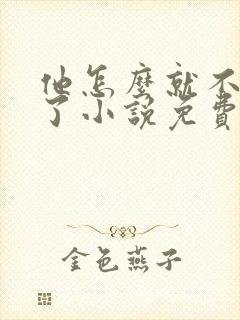 他怎麼就不
了小說免費
金色燕子